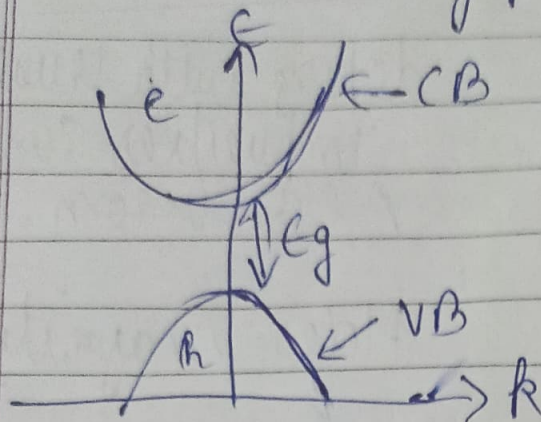 E
e
CB
Eg
h
VB
k